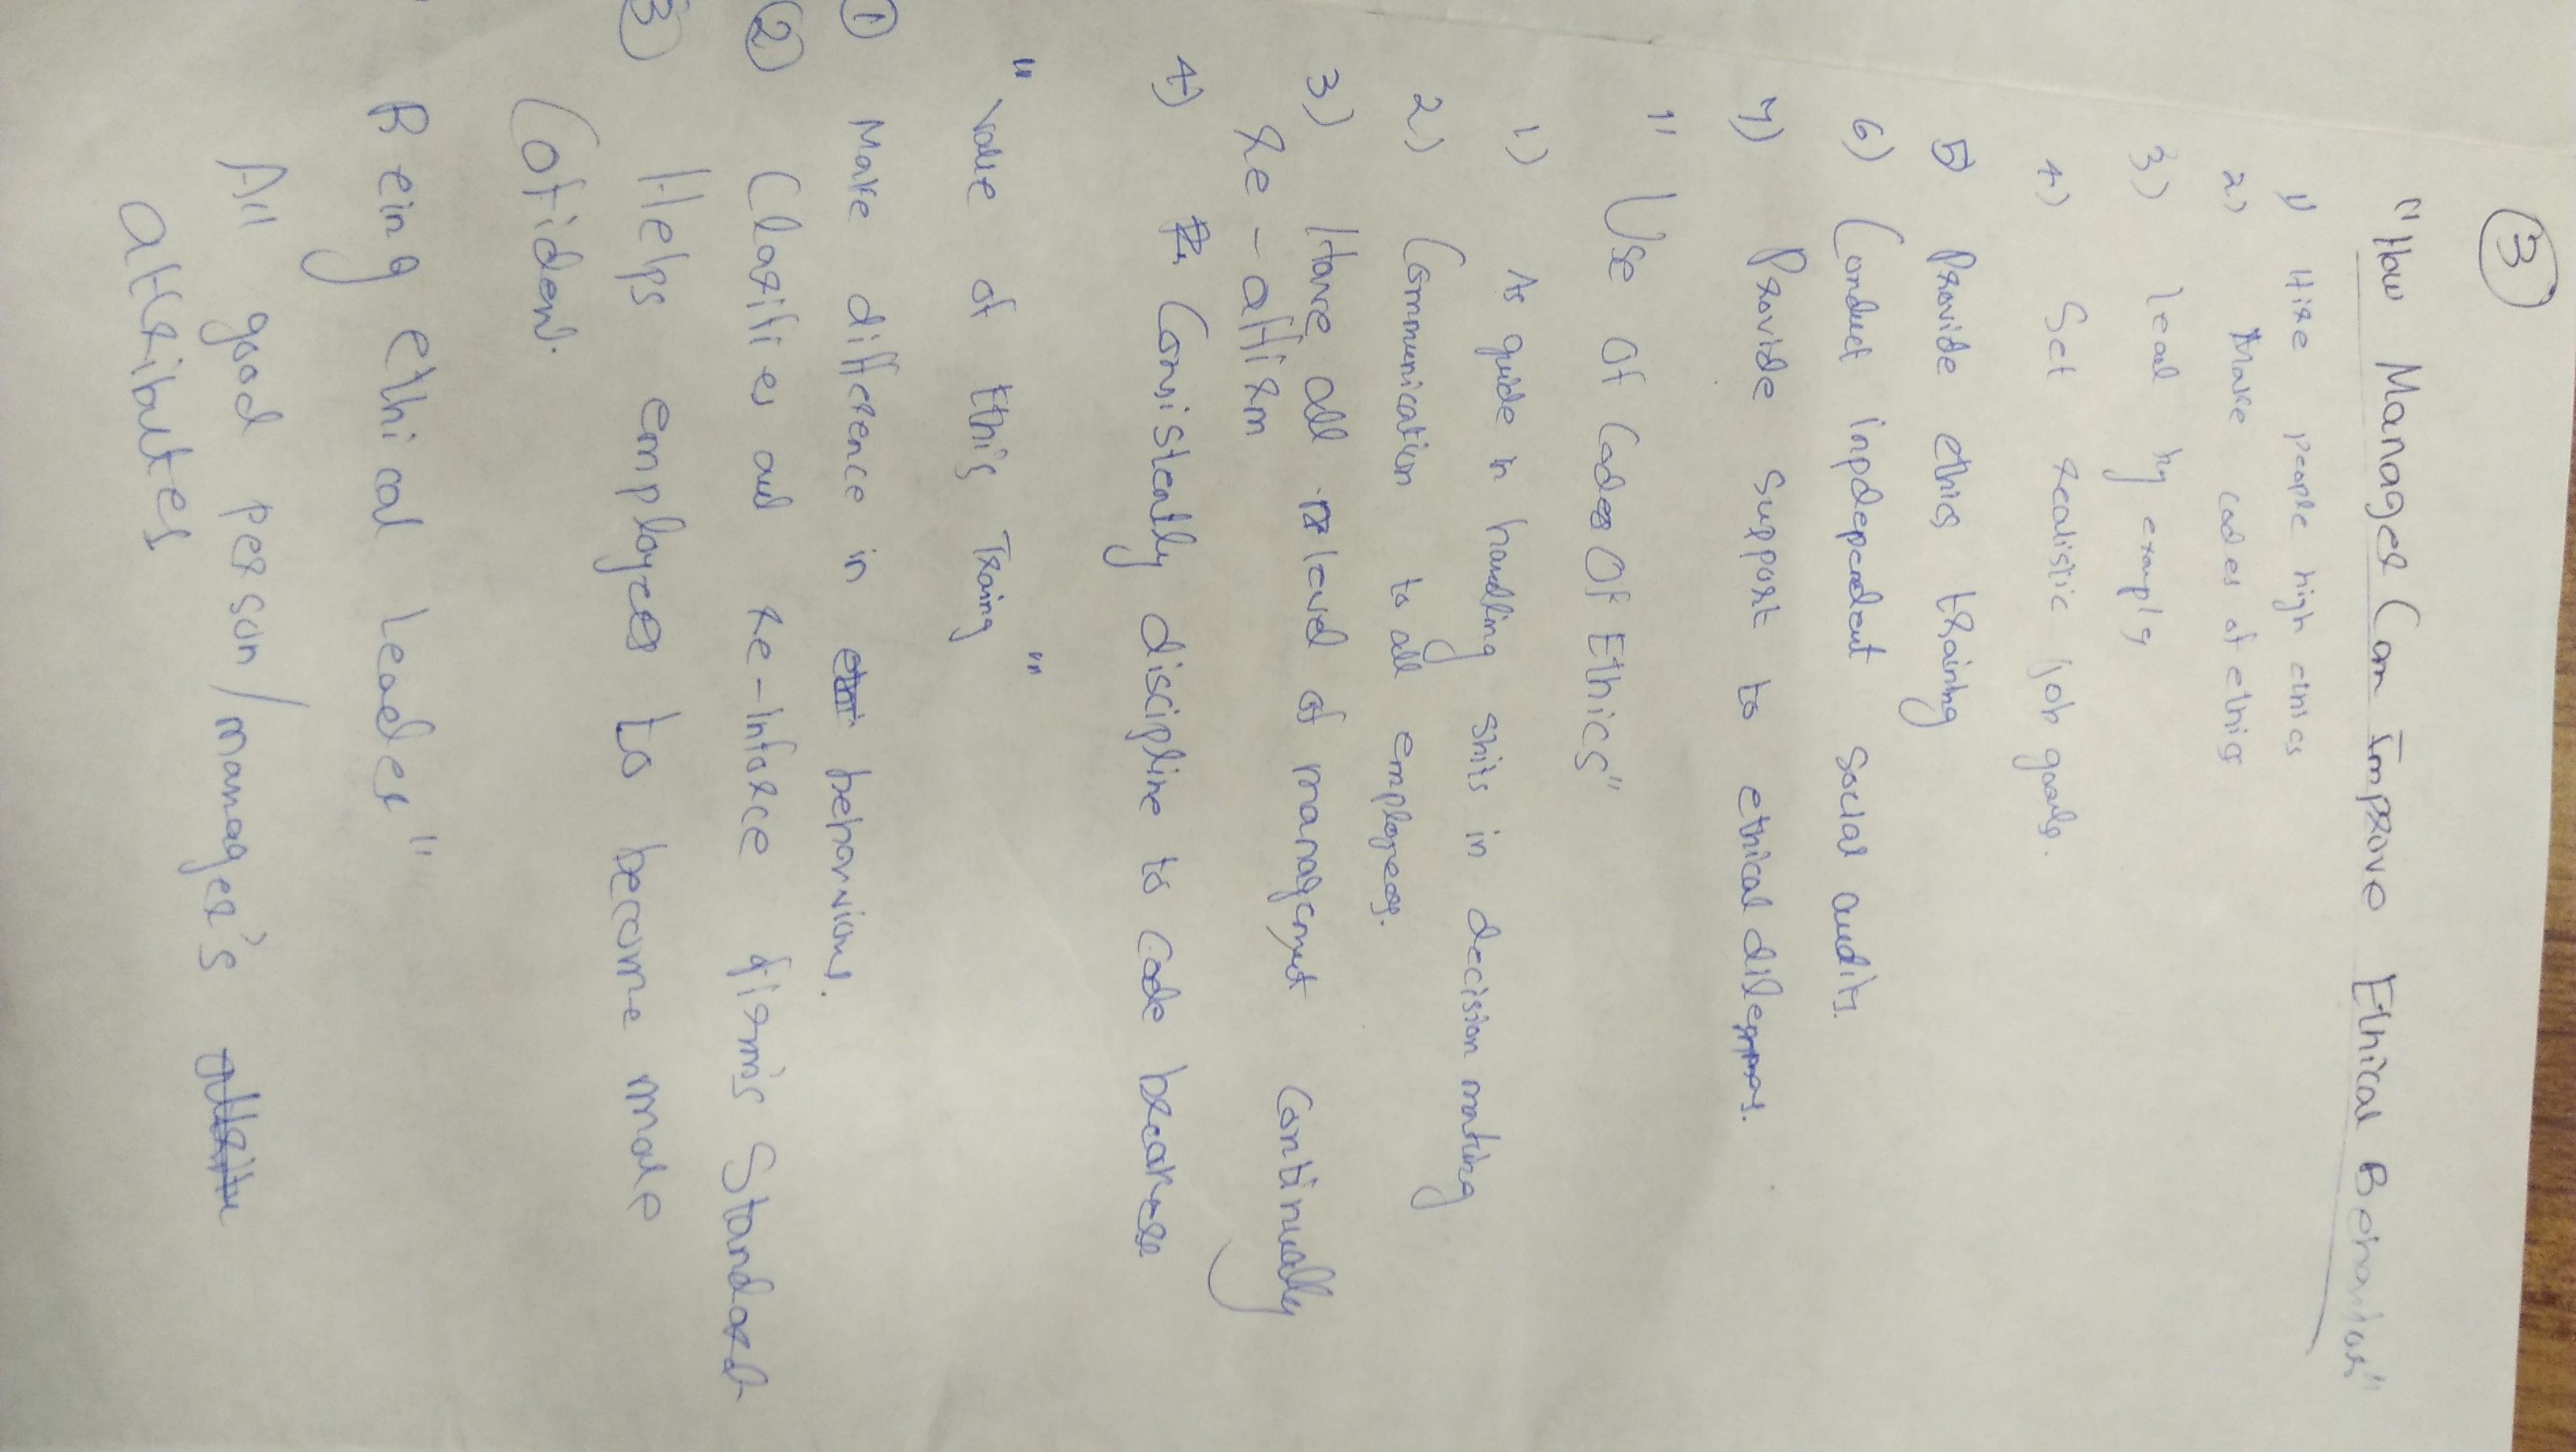 3
"How Manager Can Improve Ethical Behavior"
1) Hire people high ethics
2) Make codes of ethics
3) lead by example
4) Set realistic job goals.
5) Provide ethics training
6) Conduct inpdependent social audits.
7) Provide support to ethical dilemmas.
" Use Of Codes Of Ethics"
1) As guide in handling shits in decision making
2) Communication to all employees.
3) Have all level of management continually
re-affirm
4) Consistently discipline to code breaker
"Value of Ethis Traing"
1 Make difference in behavviour.
2 Clarifies and re-inforce firm's Standard
3 Helps employees to become more
Cofident.
Being ethical Leader"
All good person/manager's
attributes